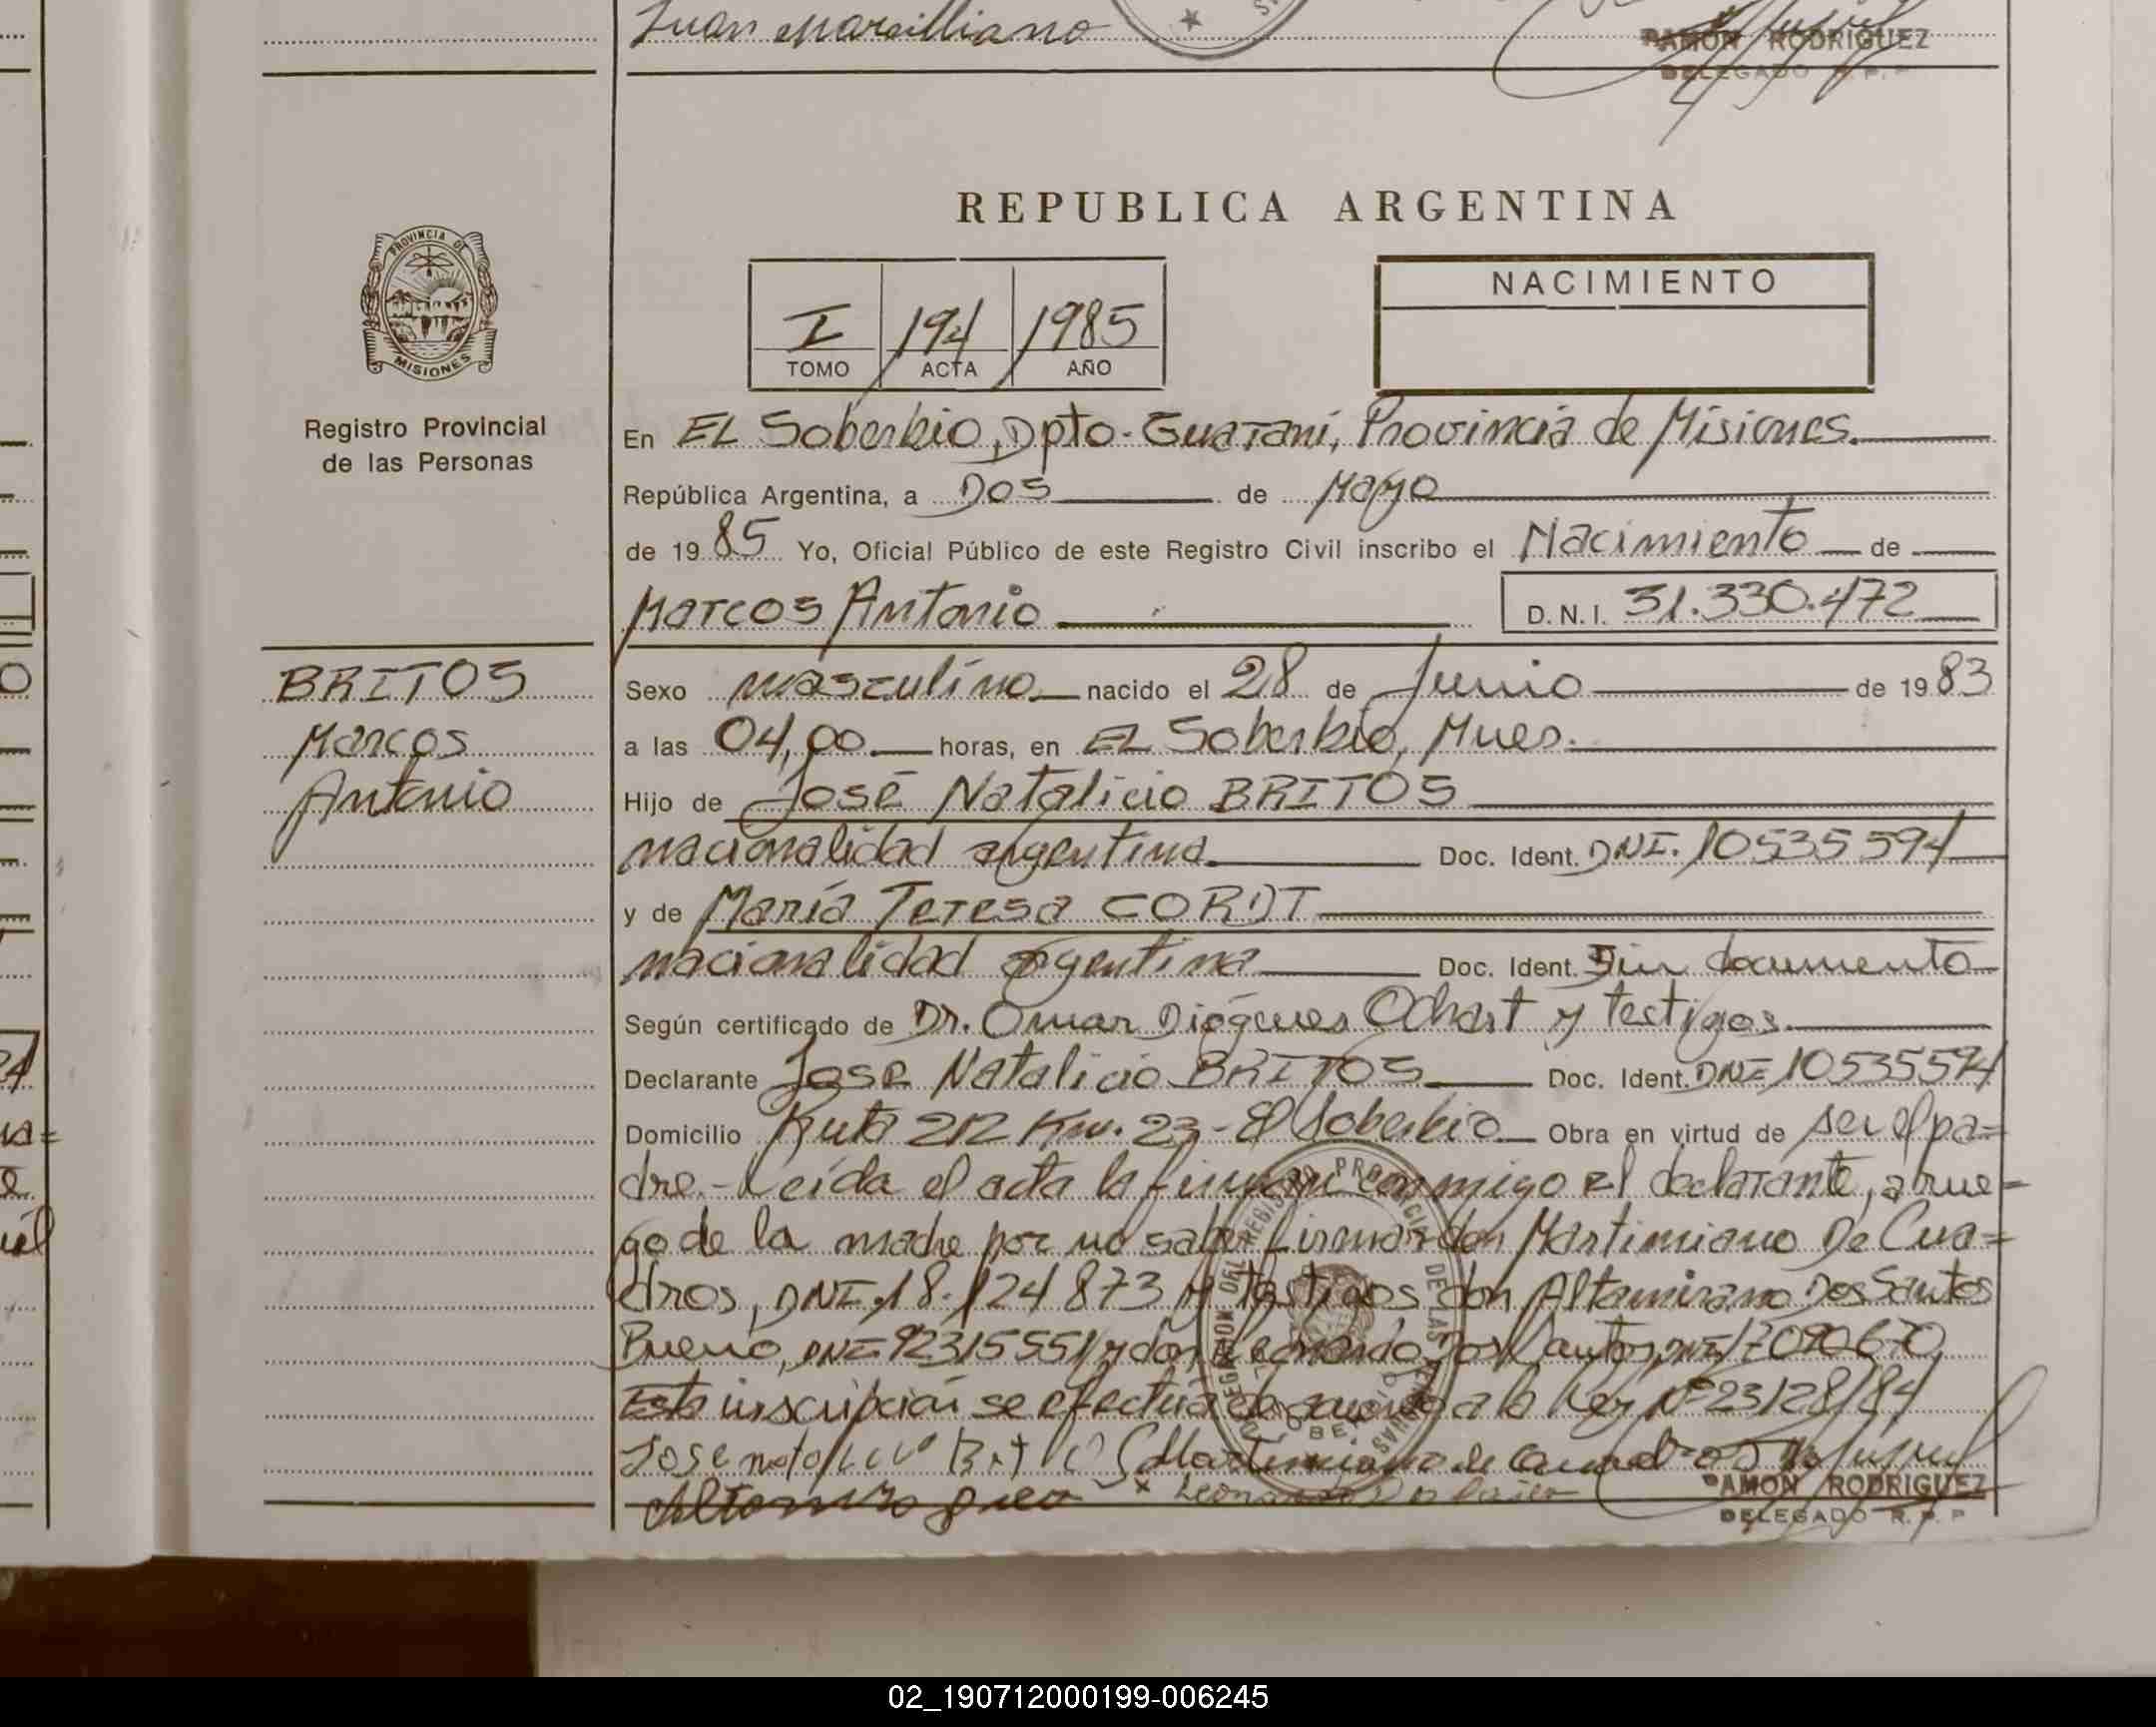 Juan Marcilliano
RAMON RODRIGUEZ
DELEGADO R. P. P
REPUBLICA ARGENTINA
PROVINCIA DE
MISIONES
Registro Provincial
de las Personas
I 194 1985
TOMO ACTA AÑO
NACIMIENTO
En EL Soberbio, Dpto. Guaraní, Provincia de Misiones.
República Argentina, a Dos de Mayo
de 1985 Yo, Oficial Público de este Registro Civil inscribo el Nacimiento de
Marcos Antonio D.N.I. 31.330.472
BRITOS
Marcos
Antonio
Sexo masculino nacido el 28 de Junio de 1983
a las 04,00 horas, en EL Soberbio, Mnes.
Hijo de José Natalicio BRITOS
nacionalidad argentina Doc. Ident. DNI. 10535594
y de María Teresa CORDT
nacionalidad argentina Doc. Ident. Sin documento
Según certificado de Dr. Omar Diógenes Ochast y testigos.
Declarante José Natalicio BRITOS Doc. Ident. DNI 10535594
Domicilio Ruta 212 Km. 23 - El Soberbio Obra en virtud de ser el pa=
dre.- Leída el acta la firman conmigo el declarante, a rue=
go de la madre por no saber firmar don Martimiano De Cua=
dros, DNI. 18.124873 y testigos don Altamirano Dos Santos
Bueno, DNI 92315551 y don Leonardo Dos Santos, DNI 17090670
Esta inscripción se efectúa de acuerdo a la Ley Nº 23128/84
Jose natalicio Britos Martimiano de Cuadros
Leonardo
RAMON RODRIGUEZ
DELEGADO R. P. P
02_190712000199-006245